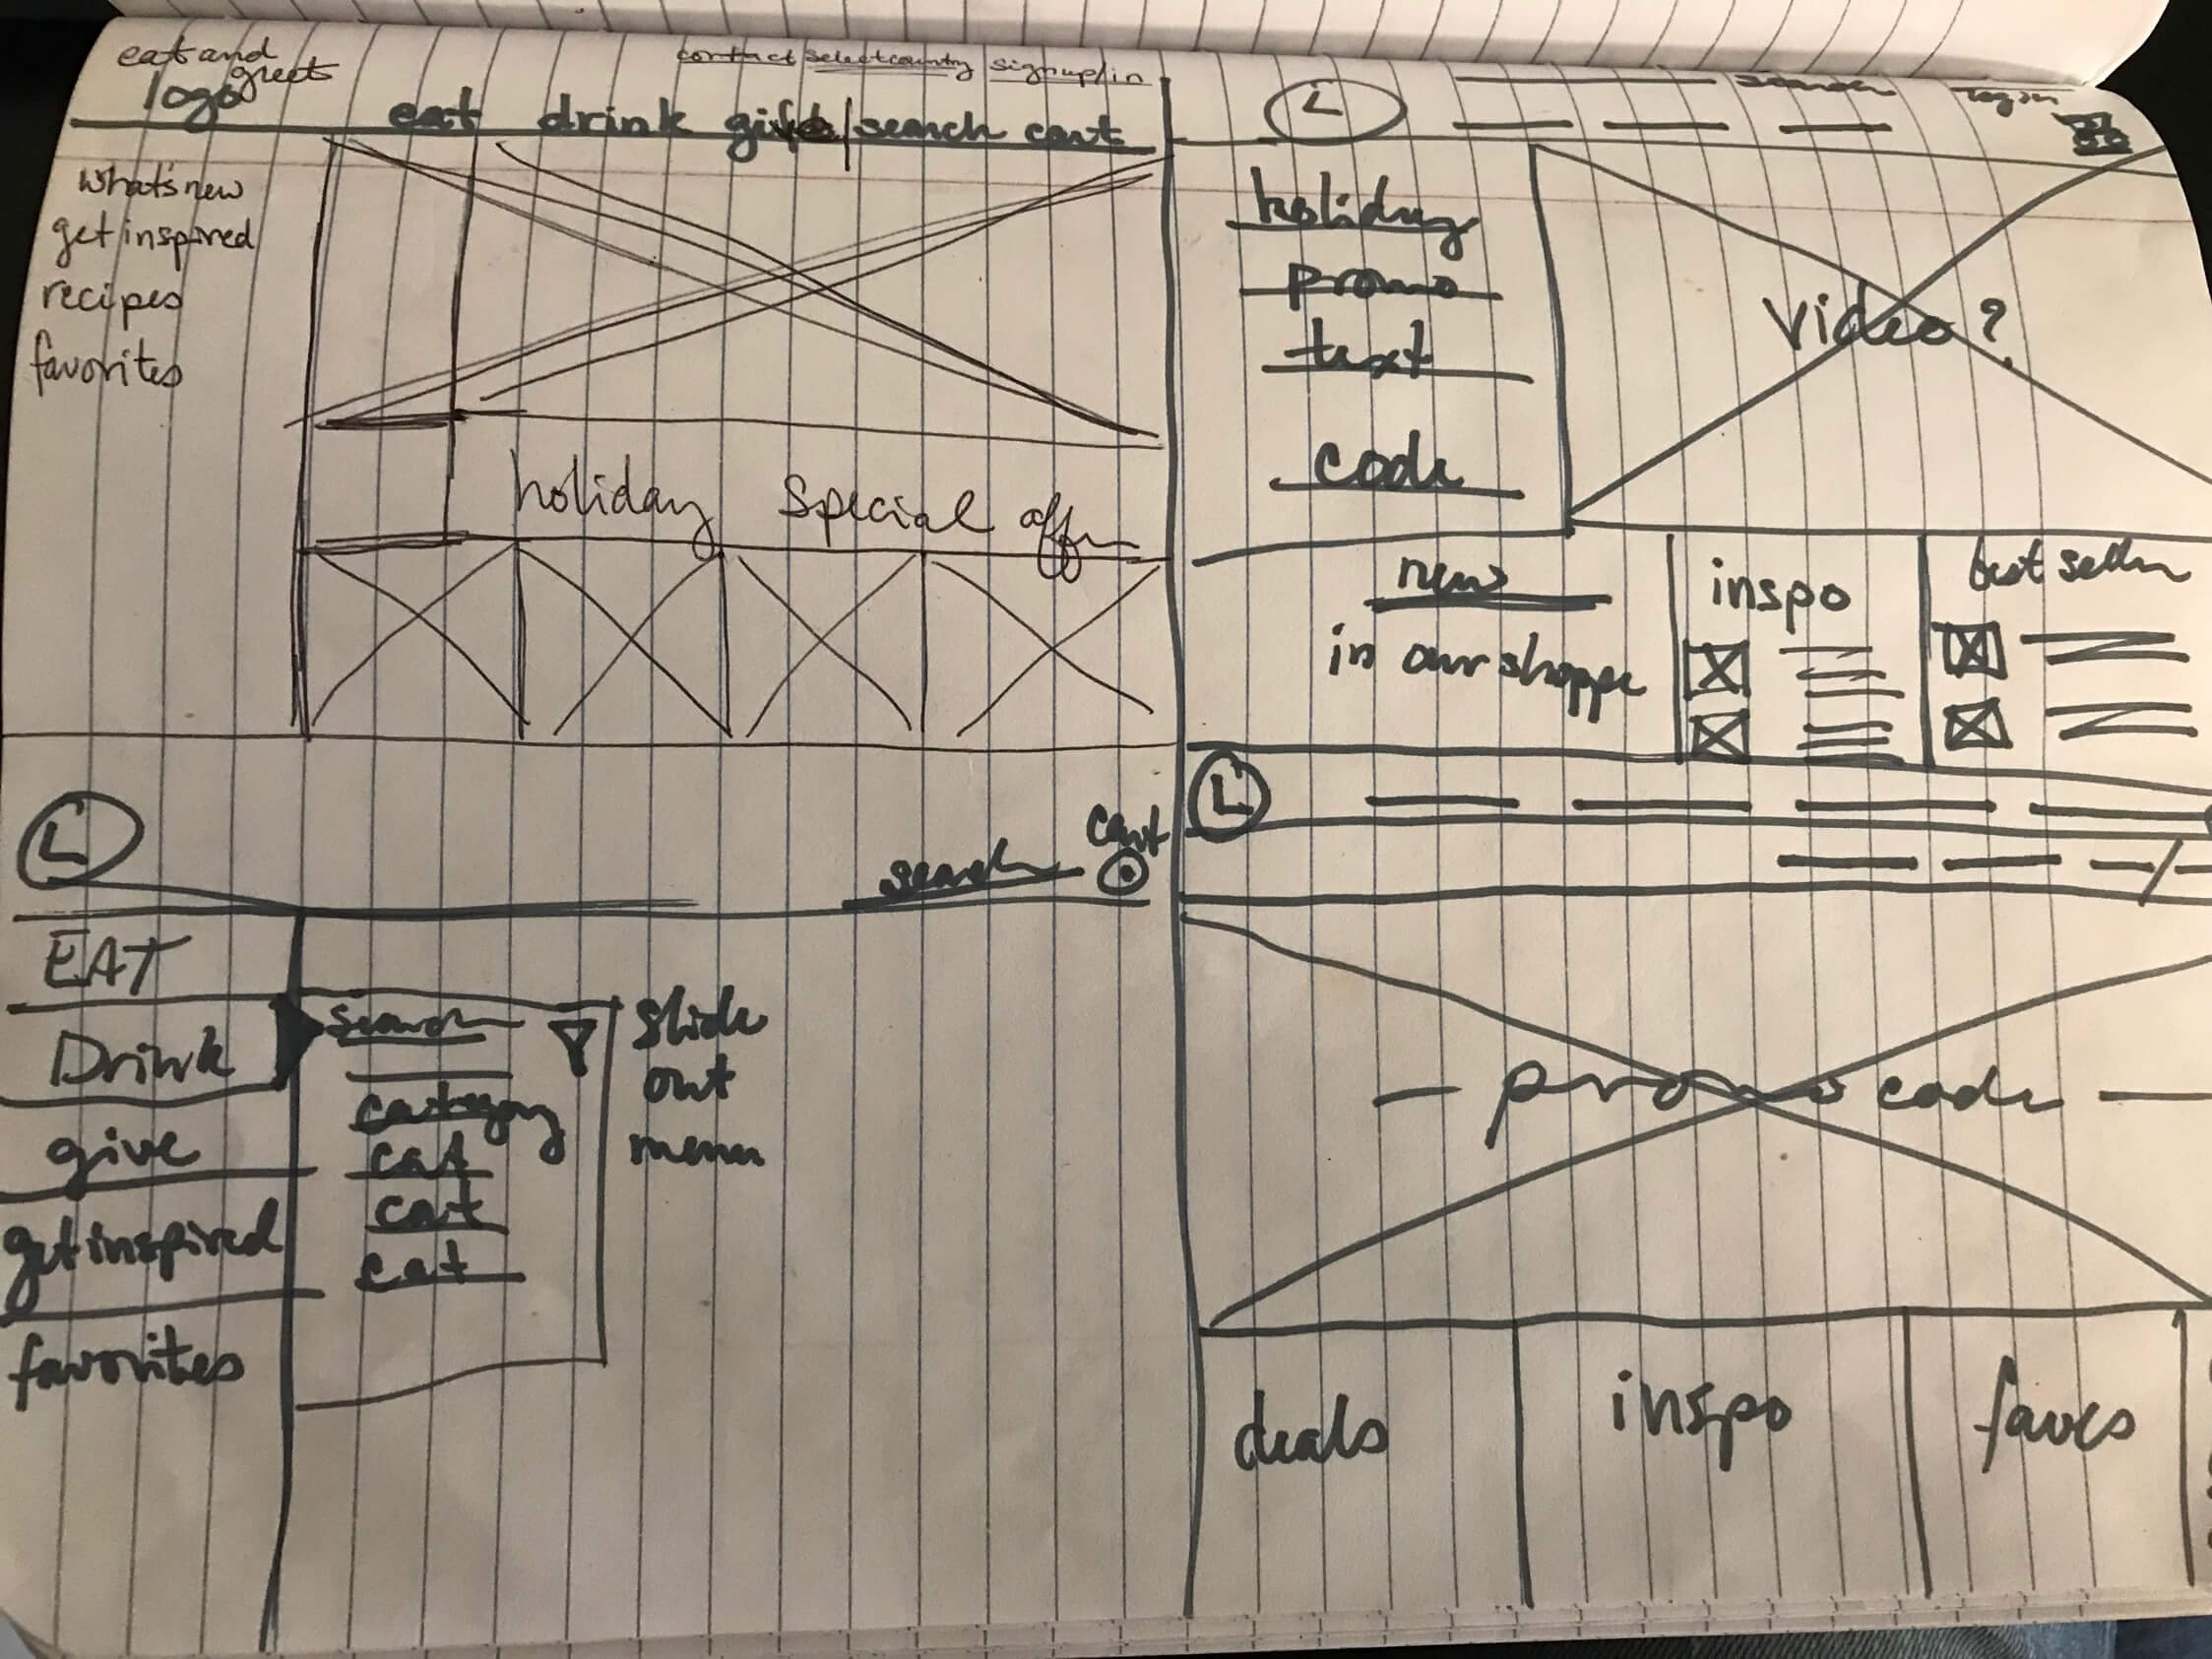 eat and
greets
logo
contact select country sign up/in
eat drink give/search cart
what's new
get inspired
recipes
favorites
holiday special offer
L
search
login
holiday
promo
text
code
Video?
new
in our shoppe
inspo
best seller
L
search
cart
EAT
Drink
give
get inspired
favorites
search
category
cat
cat
cat
slide
out
menu
L
- promo code -
deals
inspo
faves